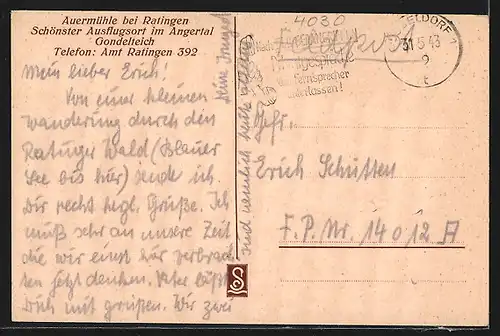 Auermühle bei Ratingen
Schönster Ausflugsort im Angertal
Gondelteich
Telefon: Amt Ratingen 392
Mein lieber Erich!
Von einer kleinen
Wanderung durch den
Ratinger Wald (Blauer
See bis hier) sende ich
Dir recht hzgl. Grüße. Ich
muß sehr an unsere Zeit
die wir einst hier verbrach-
ten jetzt denken. Vater läßt
Dich mit grüßen. Wir zwei
sind nämlich heute
Deine
4030
Feldpost
31.5.43
Fernsprecher
überlassen!
Gefr.
Erich Schütten
F.P. Nr. 14012 A